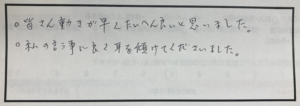 ○ 皆さん動きが早くたいへん良いと思いました。
○ 私の言う事に良く耳を傾けてくださいました。